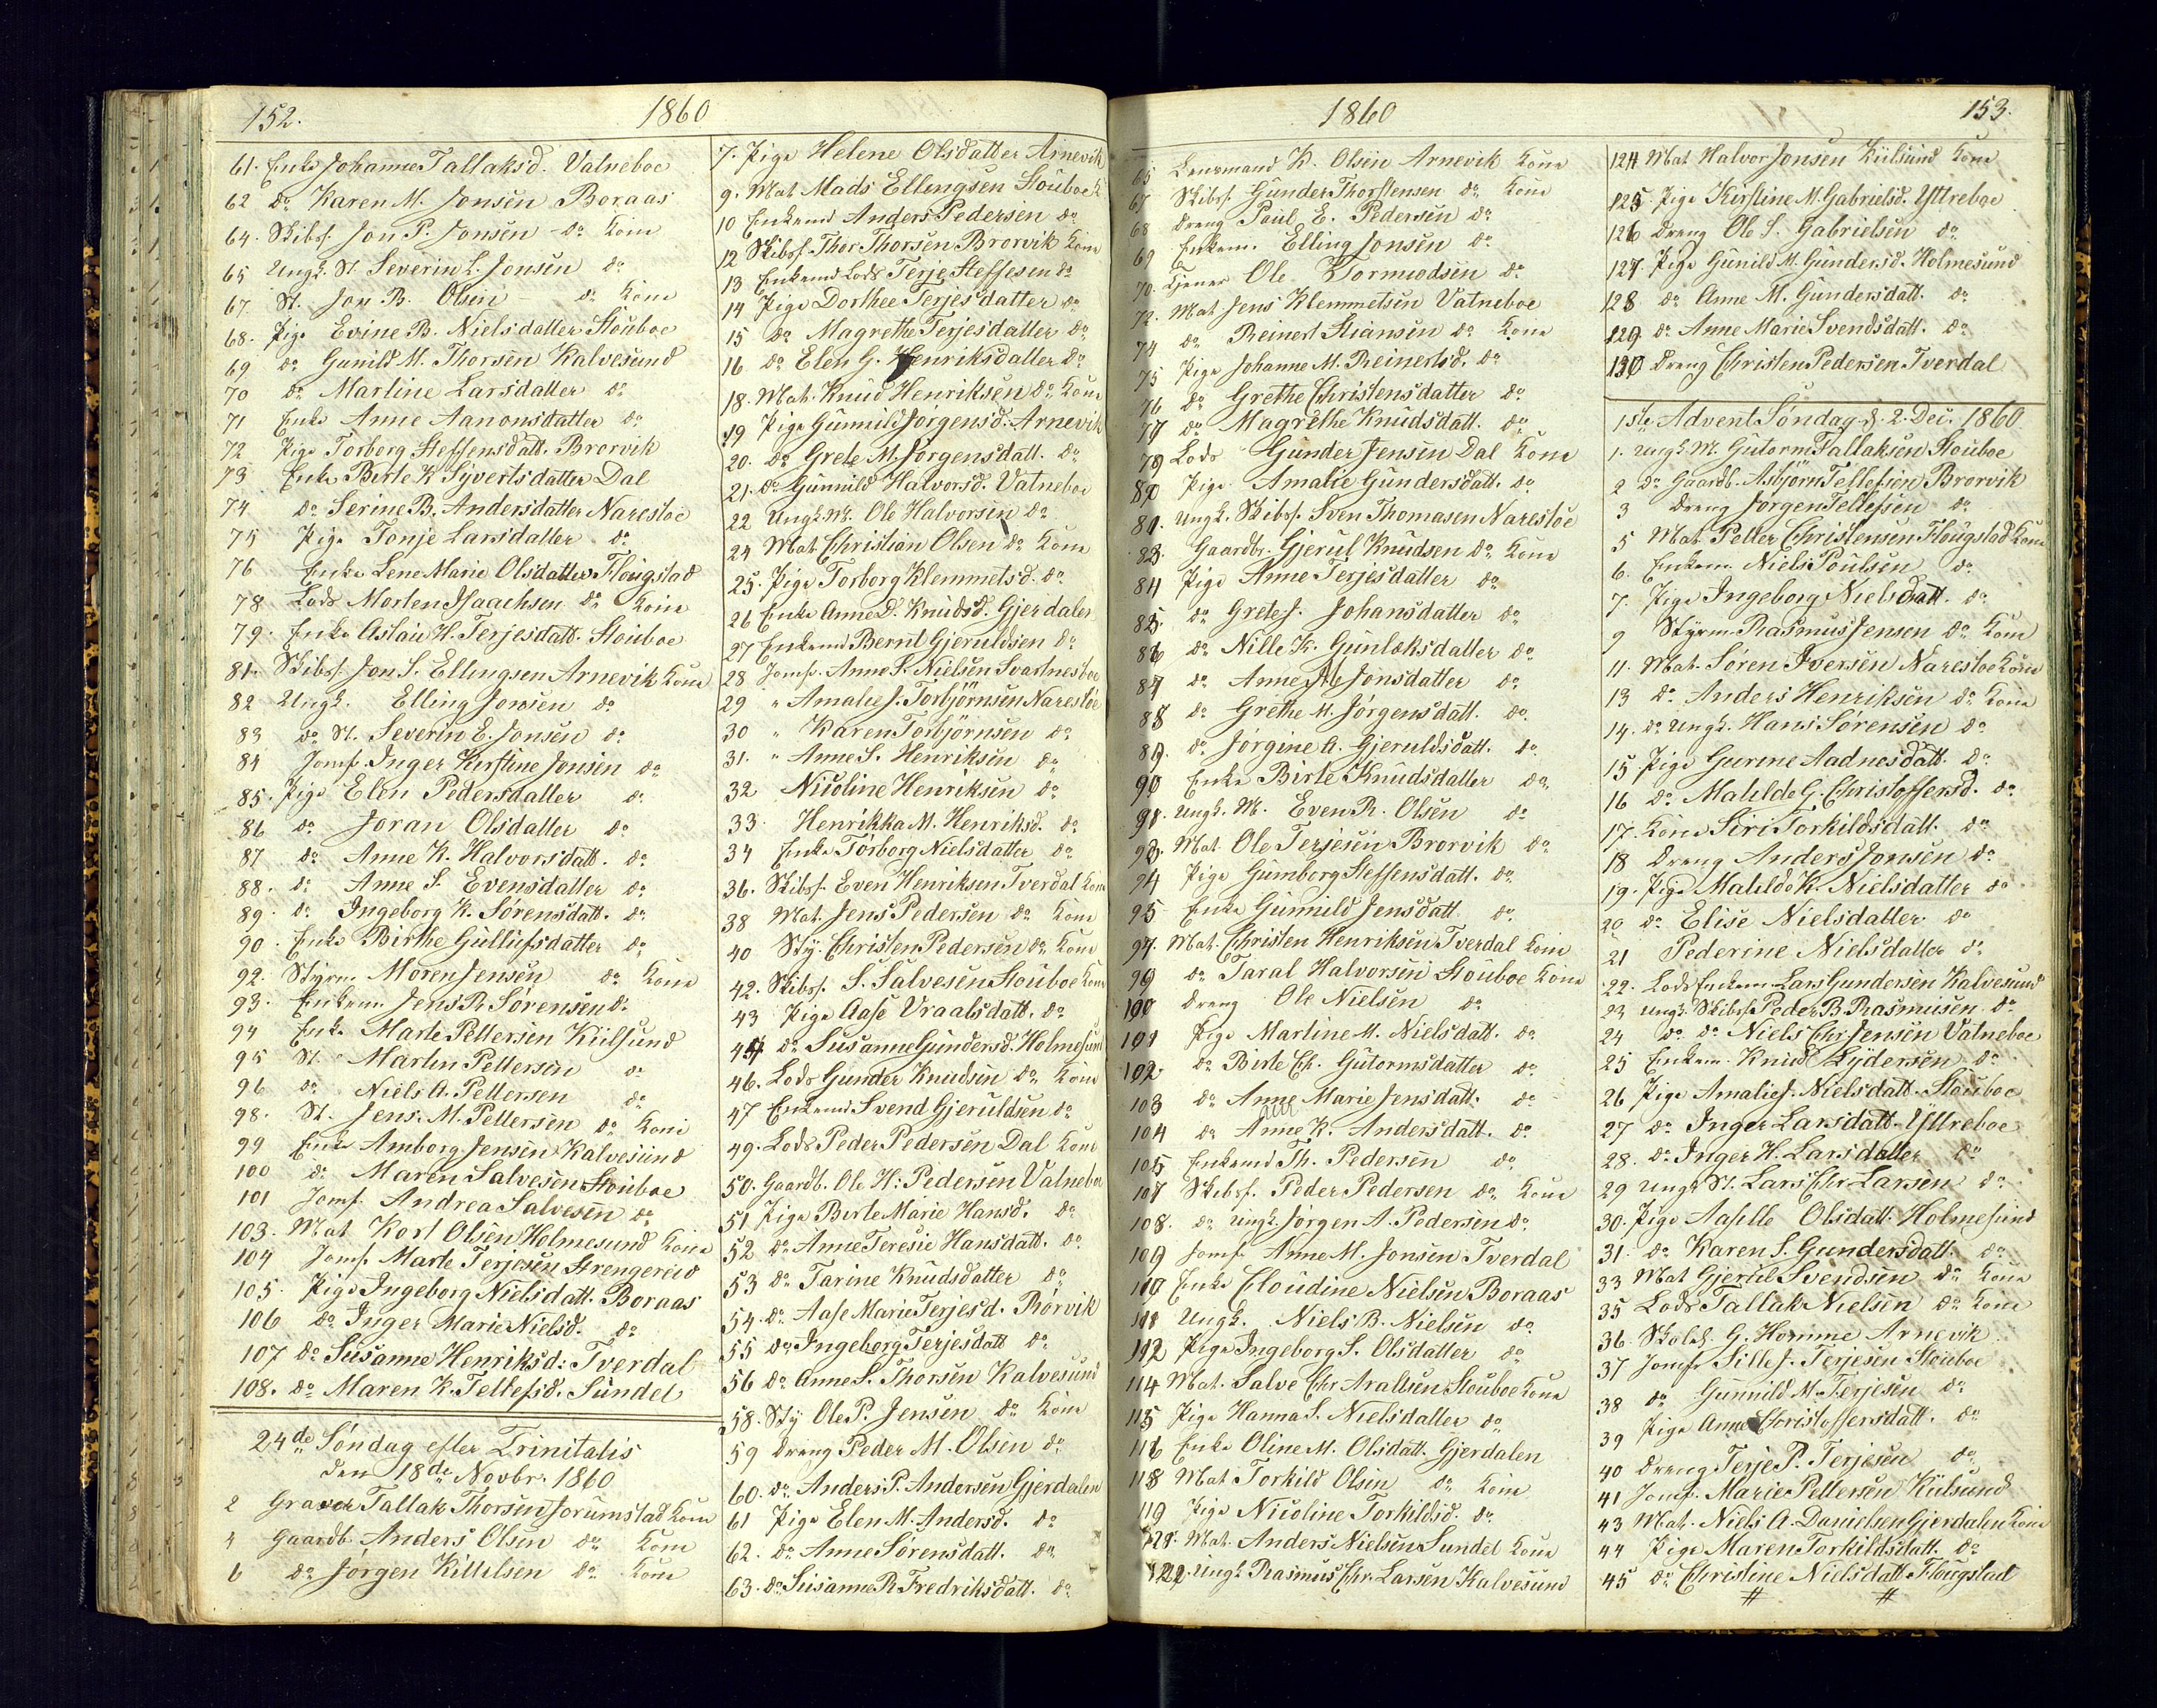 152.
1860
61. Enke Johanne Tallaksd. Vatneboe
62 do Karen M. Jonsen Boraas
64. Skibsf. Jon P. Jonsen do Kone
65 Ungk. St. Severin L. Jonsen do
67. St. Jon B. Olsen do Kone
68. Pige Evine B. Nielsdatter Stouboe
69 do Gunild M. Thorsen Kalvesund
70 do Martine Larsdatter do
71 Enke Anne Aanonsdatter do
72 Pige Torborg Steffensdatt. Brorvik
73 Enke Birte K Syvertsdatter Dal
74 do Serine B. Andersdatter Narestoe
75 Pige Tonje Larsdatter do
76 Enke Lene Marie Olsdatter Flougstad
78 Lods Morten Isaachsen do Kone
79. Enke Aslau H. Terjesdatt. Stouboe
81. Skibsf. Jon S. Ellingsen Arnevik Kone
82 Ungk. Elling Jonsen do
83 do St. Severin E. Jonsen do
84 Jomf. Inger Kirstine Jonsen do
85. Pige Elen Pedersdatter do
86 do Joran Olsdatter do
87 do Anne K. Halvorsdatt. do
88. do Anne S. Evensdatter do
89. do Ingeborg K. Sørensdatt. do
90. Enke Birthe Gullufsdatter do
92. Styrm. Moren Jensen do Kone
93. Enkem. Jens R. Sørensen do
94 Enke Marte Pettersen Kiilsund
95 St. Martin Pettersen do
96 do Niels A. Pettersen do
98. St. Jens M. Pettersen do Kone
99 Enke Amborg Jensen Kalvesund
100 do Maren Salvesen Stouboe
101 Jomf. Andrea Salvesen do
103. Mat Kort Olsen Holmesund Kone
104 Jomf. Marte Terjesen Strengereid
105. Pige Ingeborg Nielsdatt. Boraas
106 do Inger Marie Nielsd. do
107 do Susanne Henriksd: Tverdal
108. do Maren K. Tellefsd. Sundet
24de Søndag efter Trinitatis
den 18de Novbr. 1860
2 Graver Tallak Thorsen Jorumstad Kone
4 Gaardb. Anders Olsen do Kone
6 do Jørgen Kittelsen do Kone
7. Pige Helene Olsdatter Arnevik
9. Mat Mads Ellingsen Stouboe K
10 Enkemd Anders Pedersen do
12 Skibsf. Thor Thorsen Brorvik Kone
13 Enkemd Lods Terje Steffesen do
14 Pige Dorthee Terjesdatter do
15 do Magrethe Terjesdatter do
16 do Elen G. Henriksdatter do
18. Mat. Knud Henriksen do Kone
19 Pige Gunnild Jørgensd. Arnevik
20. do Grete M. Jørgensdatt. do
21. do Gunnild Halvorsd. Vatneboe
22 Ungk. M. Ole Halvorsen do
24 Mat Christian Olsen do Kone
25. Pige Torborg Klemmetsd. do
26 Enke Anne D. Knudsd. Gjerdalen
27 Enkemd Bernt Gjeruldsen do
28 Jomf. Anne S. Nielsen Svartnesboe
29 " Amalie J. Torbjörnsen Narestoe
30 " Karen Torbjörnsen do
31. " Anne S. Henriksen do
32 Nicoline Henriksen do
33. Henrikka M. Henriksd. do
34 Enke Torborg Nielsdatter do
36. Skibsf. Even Henriksen Tverdal Kone
38 Mat. Jens Pedersen do Kone
40 Sty. Christen Pedersen do Kone
42. Skibsf. S. Salvesen Stouboe Kone
43 Pige Aase Vraalsdatt. do
44 do Susanne Gundersd. Holmesund
46. Lods Gunder Knudsen do Kone
47 Enkemd Svend Gjeruldsen do
49. Lods Peder Pedersen Dal Kone
50. Gaardb. Ole H: Pedersen Vatneboe
51 Pige Birte Marie Hansd. do
52 do Anne Teresie Hansdatt. do
53 do Tarine Knudsdatter do
54. do Aase Marie Terjesd. Rørvik
55 do Ingeborg Terjesdatt do
56 do Anne S. Thorsen Kalvesund
58. Sty Ole P. Jensen do Kone
59 Dreng Peder M. Olsen do
60. do Anders P. Andersen Gjerdalen
61 Pige Elen M. Andersd. do
62. do Anne Sørensdatt. do
63. do Susanne R. Fredriksdatt. do
1860
153.
65 Lensmand K. Olsen Arnevik Kone
67 Skibsf. Gunder Thorstensen do Kone
68 Dreng Poul E. Pedersen do
69 Enkem. Elling Jonsen do
70. Tjener Ole Tormodsen do
72. Mat Jens Klemmetsen Vatneboe
74 do Reinert Stiansen do Kone
75 Pige Johanne M. Reinertsd. do
76 do Grethe Christensdatter do
77 do Magrethe Knudsdatt. do
79 Lods Gunder Jensen Dal Kone
80 Pige Amalie Gundersdatt. do
81. Ungk. Skibsf. Sven Thomasen Narestoe
83. Gaardbr. Gjerul Knudsen do Kone
84 Pige Anne Terjesdatter do
85. do Grete J. Johansdatter do
86 do Nille K. Gunlaksdatter do
87 do Anne M Jonsdatter do
88 do Grethe M. Jørgensdatt. do
89. do Jørgine A. Gjeruldsdatt. do
90 Enke Birte Knudsdatter do
91. Ungk. M. Even R. Olsen do
93. Mat. Ole Terjesen Brorvik do
94 Pige Gumborg Steffensdatt. do
95 Enke Gunnild Jensdatt. do
97. Mat. Christen Henriksen Tverdal Kone
99 do Taral Halvorsen Stouboe Kone
100 Dreng Ole Nielsen do
101 Pige Martine M. Nielsdatt. do
102 do Birte Ch. Gutormsdatter do
103 do Anne Marie Jensdatt. do
104 do Anne K. Andersdatt. do
105 Enkemd Th. Pedersen do
107 Skibsf. Peder Pedersen do Kone
108. do Ungk. Jørgen A. Pedersen do
109 Jomf. Anne M. Jonsen Tverdal
110 Enke Cloudine Nielsen Boraas
111 Ungk. Niels B. Nielsen do
112 Pige Ingeborg S. Olsdatter do
114 Mat. Salve Chr Araltsen Stouboe Kone
115 Pige Hanna S. Nielsdatter do
116 Enke Oline M. Olsdatt. Gjerdalen
118 Mat Torkild Olsen do Kone
119 Pige Nicoline Torkildsd. do
121. Mat. Anders Nielsen Sundet Kone
122. Ungk Rasmus Chr. Larsen Kalvesund
124 Mat Halvor Jonsen Kiilsund Kone
125. Pige Kirstine M. Gabrielsd. Yttreboe
126 Dreng Ole S. Gabrielsen do
127. Pige Gunild M. Gundersd. Holmesund
128 do Anne M. Gundersdatt. do
129 do Anne Marie Svendsdatt. do
130 Dreng Christen Pedersen Tverdal
1ste Advent Søndag d. 2. Dec. 1860.
1. Ungk M. Gutorm Tallaksen Stouboe
2 do Gaardb. Asbjörn Tellefsen Brorvik
3 Dreng Jørgen Tellefsen do
5 Mat. Petter Christensen Flougstad Kone
6. Enkem. Niels Poulsen do
7. Pige Ingeborg Nielsdatt. do
9 Styrm. Rasmus Jensen do Kone
11. Mat. Søren Iversen Narestoe Kone
13 do Anders Henriksen do Kone
14. do Ungk. Hans Sørensen do
15 Pige Gurine Aadnesdatt. do
16 do Matilde G. Christoffersd. do
17. Kone Siri Torkildsdatt. do
18 Dreng Anders Jonsen do
19. Pige Matilde K. Nielsdatter do
20 do Elise Nielsdatter do
21 Pederine Nielsdatter do
22. Lods Enkem. Lars Gundersen Kalvesund
23 Ungk. Skibsf. Peder B. Rasmusen do
24 do do Niels Chr Jensen Vatneboe
25 Enkem. Knud Lydersen do
26 Pige Amalie J. Nielsdatt. Stouboe
27 do Inger Larsdatt. Yttreboe
28. do Inger H. Larsdatter do
29 Ungk St. Lars Chr. Larsen do
30. Pige Aaselle Olsdatt. Holmesund
31. do Karen S. Gundersdatt. do
33 Mat Gjerul Svendsen do Kone
35 Lods Tallak Nielsen do Kone
36. Skolel. G. Homme Arnevik
37 Jomf. Sille J. Terjesen Stouboe
38 do Gunnild M. Terjesen do
39 Pige Anne Christoffersdatt. do
40 Dreng Terje P. Terjesen do
41 Jomf. Marie Pettersen Kiilsund
43 Mat. Niels A. Danielsen Gjerdalen Kone
44 Pige Maren Torkildsdatt. do
45 do Christine Nielsdatt Flougstad
# #